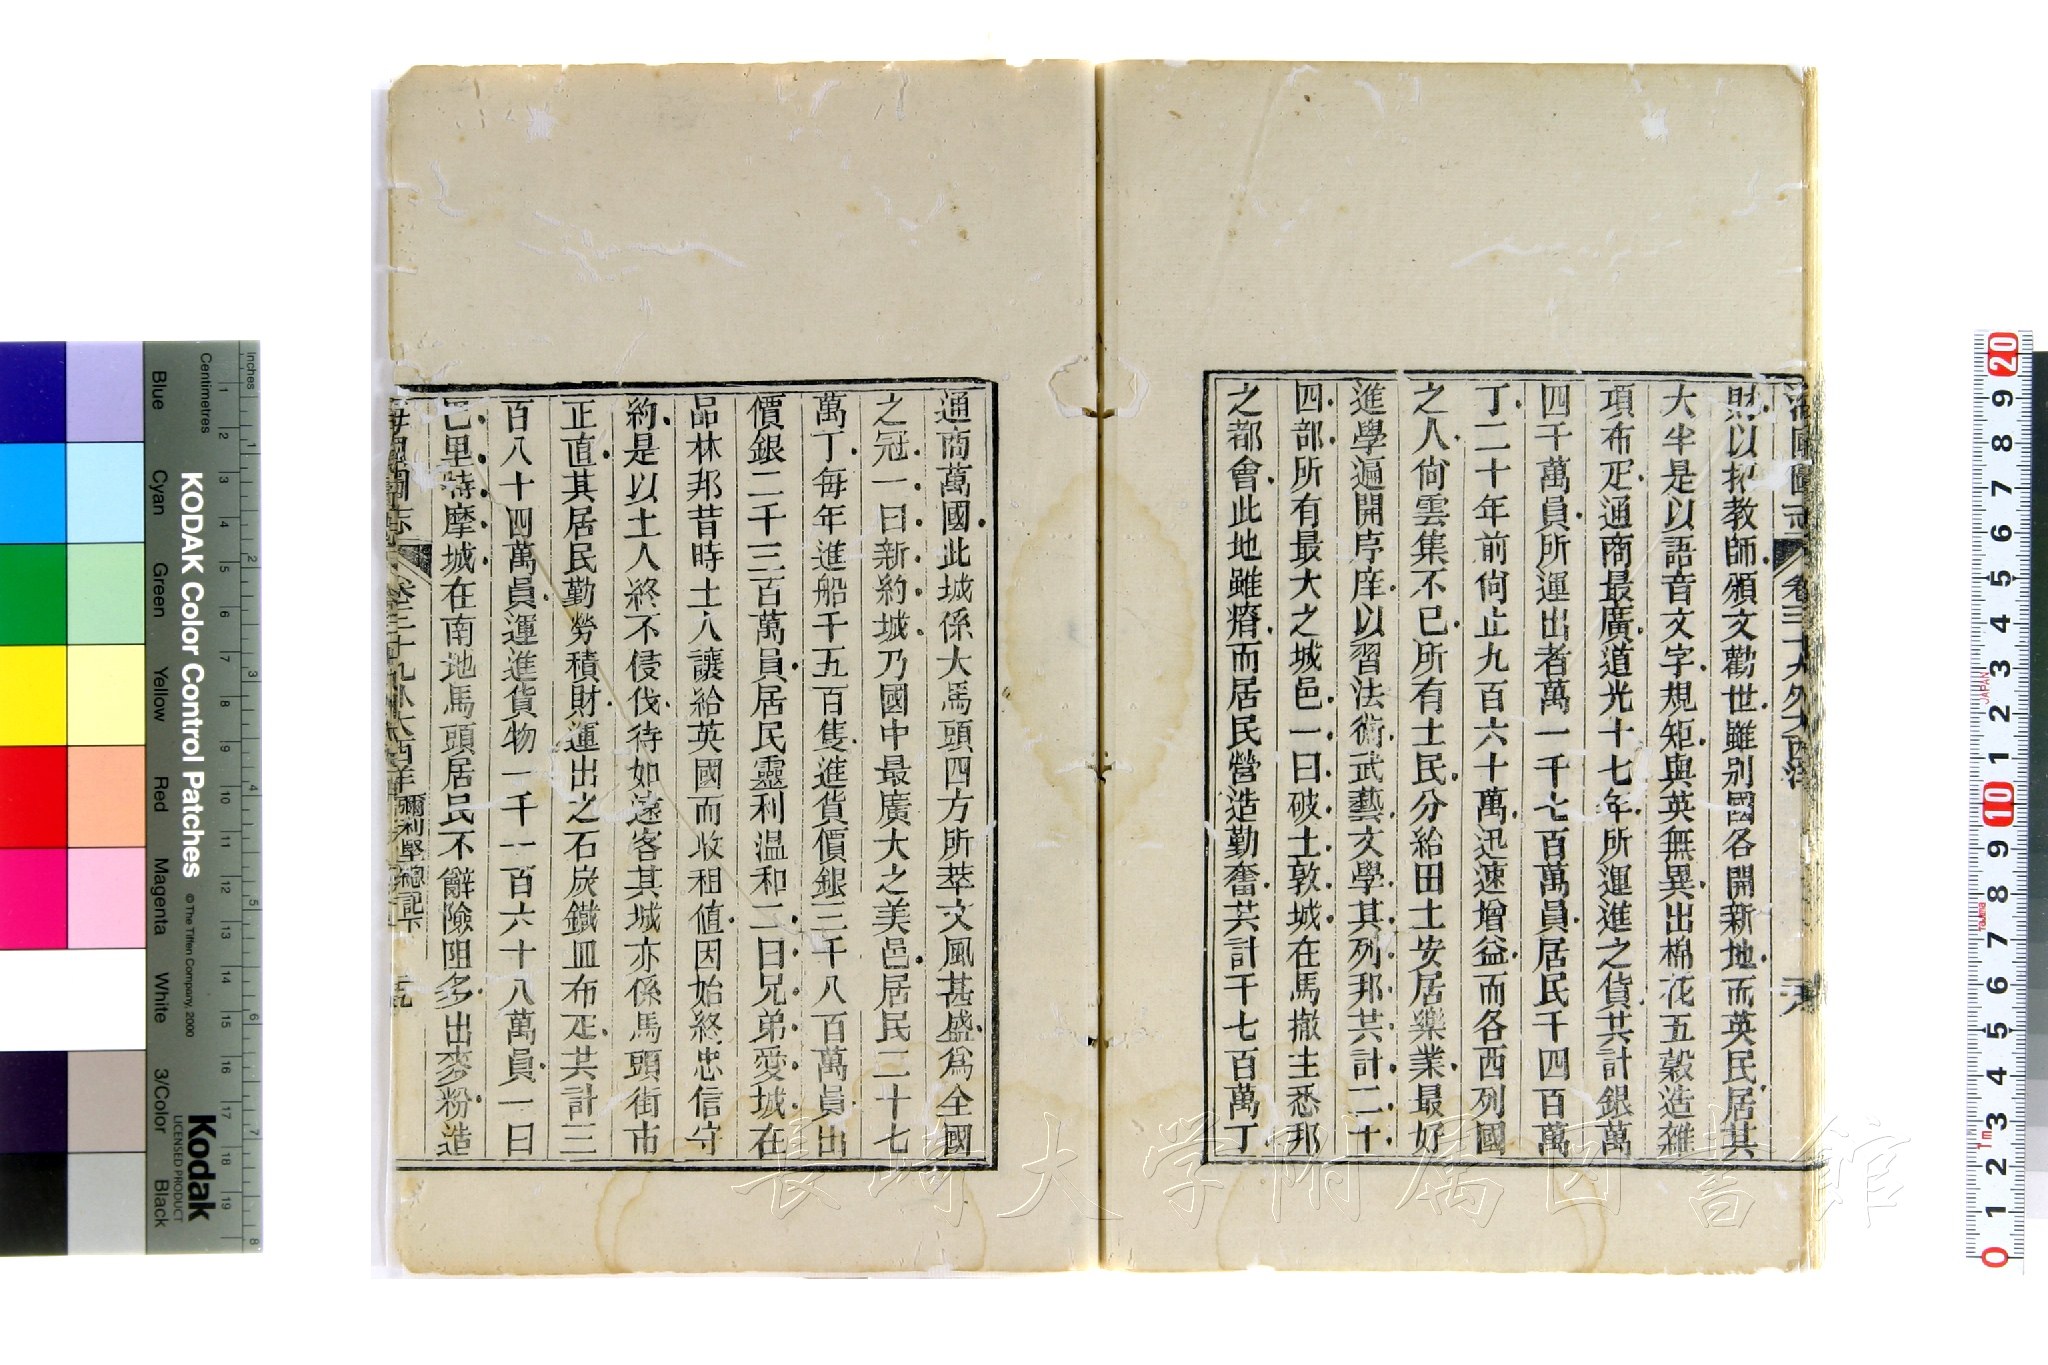 海國圖志 卷三十九外大西洋
財以招教師頒文勸世雖別國各開新地而英民居其
大半是以語音文字規矩與英無異出棉花五穀造雜
項布疋通商最廣道光十七年所運進之貨共計銀萬
四千萬員所運出者萬一千七百萬員居民千四百萬
丁二十年前尙止九百六十萬迅速增益而各西列國
之人尙雲集不已所有士民分給田土安居樂業最好
進學遍開序庠以習法術武藝文學其列邦共計二十
四部所有最大之城邑一曰破士敦城在馬撤主悉邦
之都會此地雖瘠而居民營造勤奮共計千七百萬丁
通商萬國此城係大馬頭四方所萃文風甚盛爲全國
之冠一曰新約城乃國中最廣大之美邑居民二十七
萬丁每年進船千五百隻進貨價銀三千八百萬員出
價銀二千三百萬員居民靈利温和二曰兄弟愛城在
品林邦昔時土人讓給英國而收租值因始終忠信守
約是以土人終不侵伐待如遠客其城亦係馬頭街市
正直其居民勤勞積財運出之石炭鐵皿布疋共計三
百八十四萬員運進貨物一千一百六十八萬員一曰
巴里特摩城在南地馬頭居民不辭險阻多出麥粉造
海國圖志 卷三十九外大西洋 彌利堅總記下
KODAK Color Control Patches
© The Tiffen Company, 2000
Kodak
LICENSED PRODUCT
Inches
Centimetres
Blue Cyan Green Yellow Red Magenta White 3/Color Black
長崎大学附属図書館